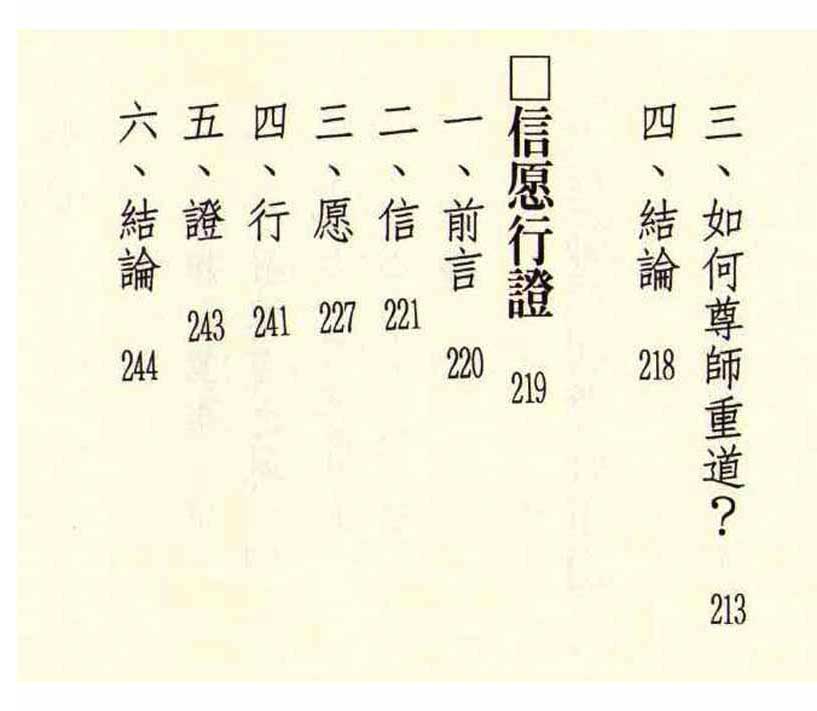 三、如何尊師重道？ 213
四、結論 218
□信愿行證 219
一、前言 220
二、信 221
三、愿 227
四、行 241
五、證 243
六、結論 244